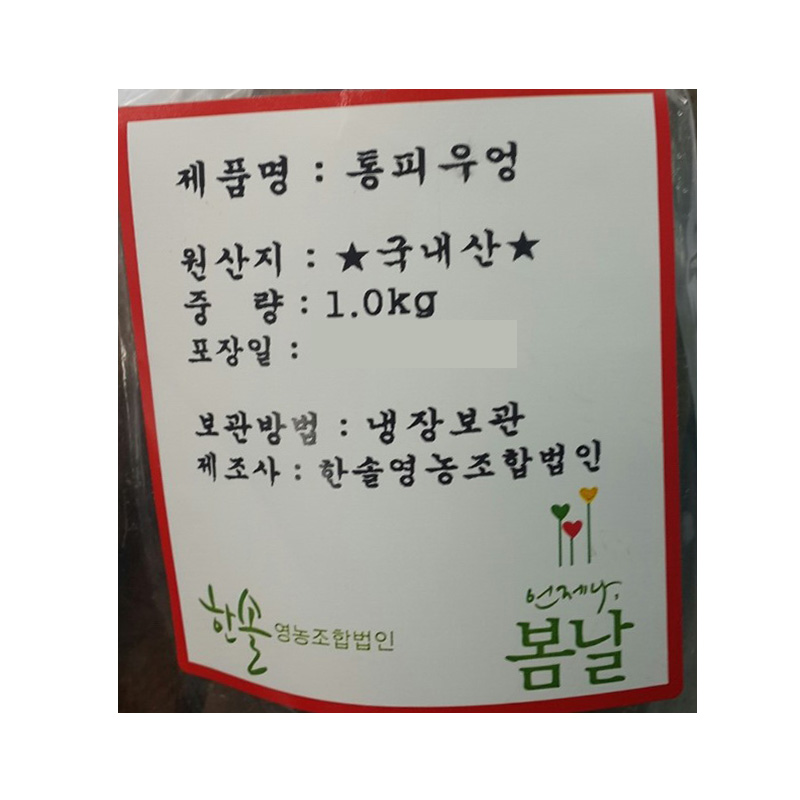 제품명 : 통피우엉
원산지 : ★국내산★
중 량 : 1.0kg
포장일 :
보관방법 : 냉장보관
제조사 : 한솔영농조합법인
언제나,
한솔 영농조합법인
봄날